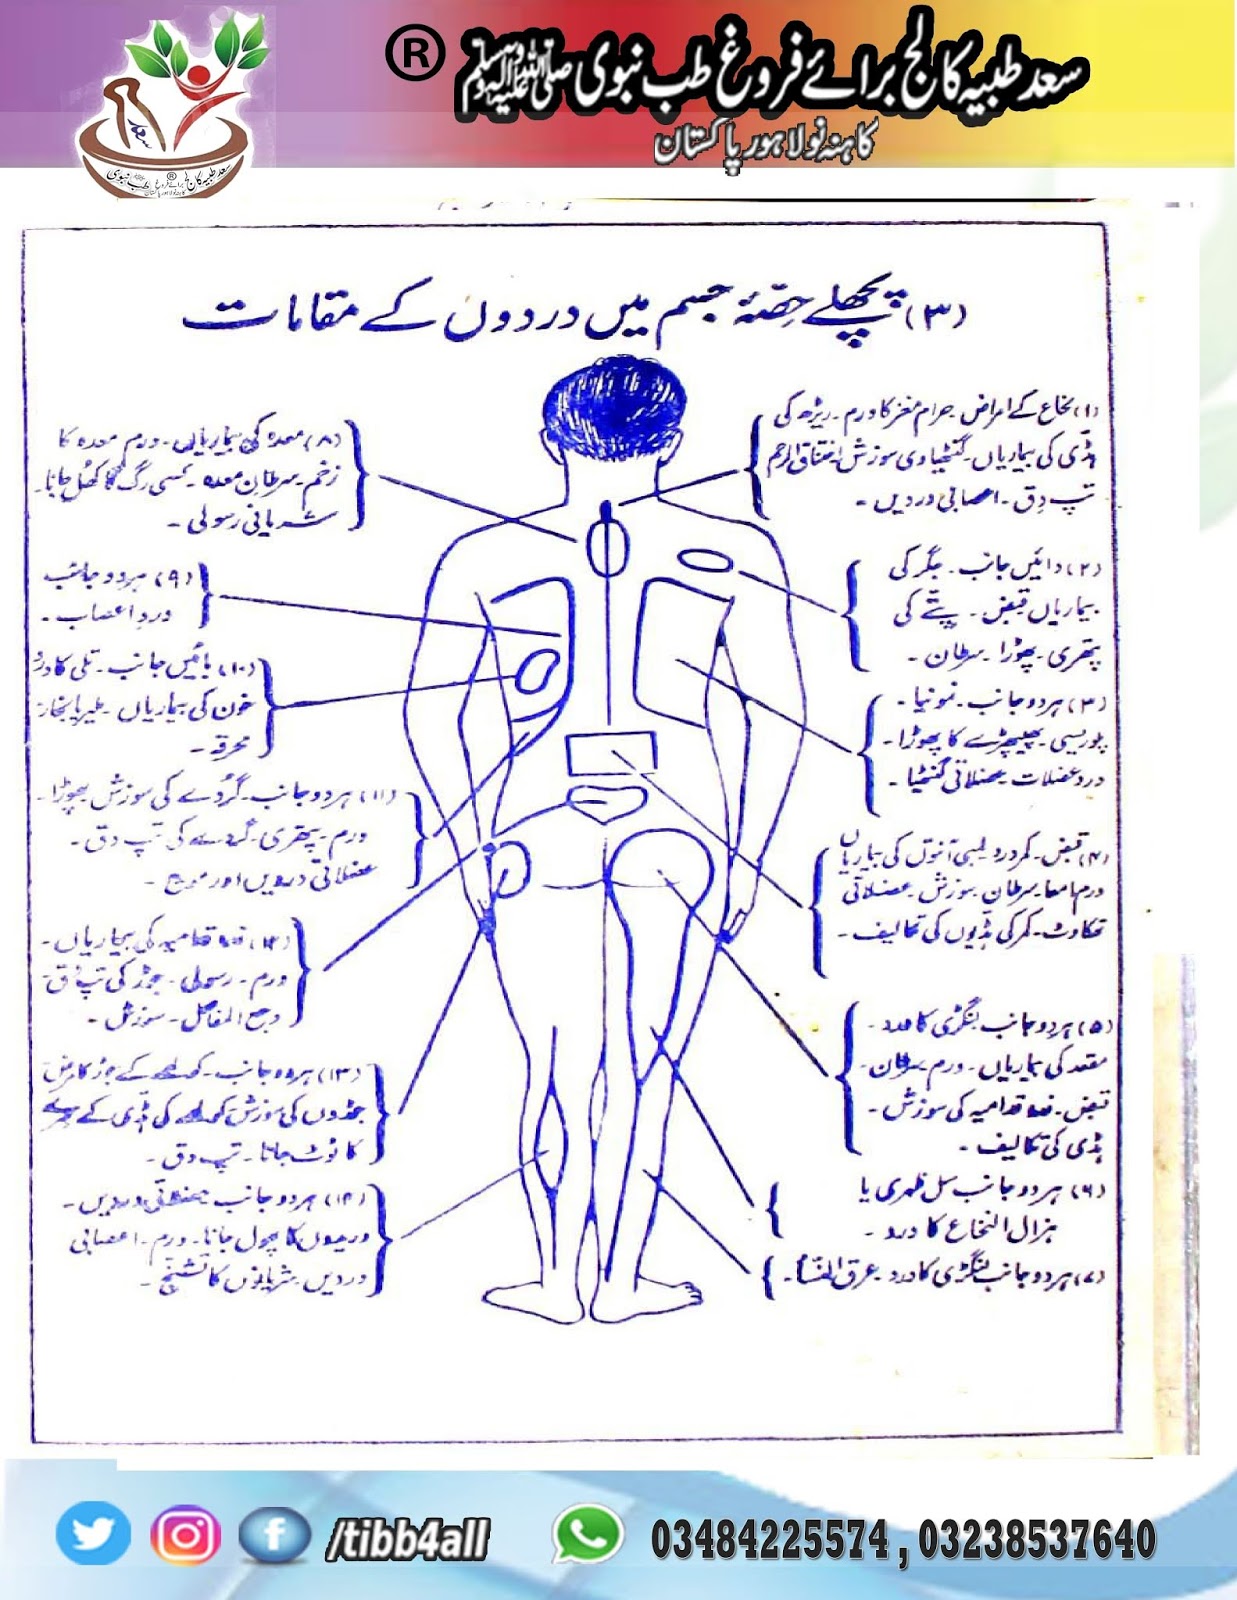 سعد طبیہ کالج برائے فروغ طب نبوی صلی اللہ علیہ وآلہ وسلم ®
کاہنہ نو لاہور پاکستان
سعد
سعد طبیہ کالج برائے فروغ طب نبوی ®
کاہنہ نو لاہور پاکستان
(۳) پچھلے حصّۂ جسم میں دردوں کے مقامات
(۱) نخاع کے امراض حرام مغز کا ورم۔ ریڑھ کی
ہڈی کی بیماریاں۔ گنٹھیاوی سوزش اختناق الرحم
تپ دق۔ اعصابی دردیں۔
(۲) دائیں جانب۔ جگر کی
بیماریاں قبض۔ پتے کی
پتھری۔ پھوڑا۔ سرطان۔
(۳) ہر دو جانب۔ نمونیا۔
پلوریسی۔ پھیپھڑے کا پھوڑا۔
درد عضلات۔ عضلاتی گنٹھیا۔
(۴) قبض۔ کمر درد لمبی آنتوں کی بیماریاں
ورم امعا۔ سرطان۔ سوزش۔ عضلاتی
تھکاوٹ۔ کمر کی ہڈیوں کی تکالیف۔
(۵) ہر دو جانب لنگڑی کا درد۔
مقعد کی بیماریاں۔ ورم۔ سرطان۔
قبض۔ غدہ قدامیہ کی سوزش۔
ہڈی کی تکالیف۔
(۶) ہر دو جانب سل ظہری یا
ہزال النخاع کا درد۔
(۷) ہر دو جانب لنگڑی کا درد۔ عرق النسا۔
(۸) معدہ کی بیماریاں۔ ورم معدہ کا
زخم۔ سرطان معدہ۔ کسی رگ کا کھل جانا۔
شریانی رسولی۔
(۹) ہر دو جانب
درد اعصاب۔
(۱۰) بائیں جانب۔ تلی کا درد
خون کی بیماریاں۔ ملیریا بخار
محرقہ۔
(۱۱) ہر دو جانب۔ گردے کی سوزش پھوڑا۔
ورم۔ پتھری۔ گردے کی تپ دق۔
عضلاتی دردیں اور موچ۔
(۱۲) غدہ قدامیہ کی بیماریاں۔
ورم۔ رسولی۔ جوڑ کی تپ دق۔
وجع المفاصل۔ سوزش۔
(۱۳) ہر دو جانب۔ کولھے کے جوڑ کا مرض
جوڑوں کی سوزش کولھے کی ہڈی کے
کا ٹوٹ جانا۔ تپ دق۔
(۱۴) ہر دو جانب عضلاتی دردیں۔
وریدوں کا پھول جانا۔ ورم۔ اعصابی
دردیں۔ شریانوں کا تشنج۔
/tibb4all
03484225574 , 03238537640